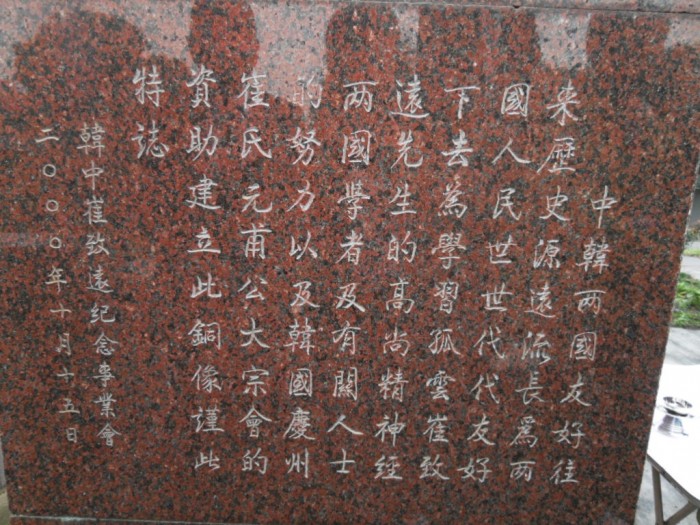 中韓两國友好往
来歷史源遠流長爲两
國人民世世代代友好
下去為學習孤雲崔致
遠先生的高尚精神经
两國學者及有關人士
的努力以及韓國慶州
崔氏元甫公大宗會的
資助建立此銅像謹此
特誌
韓中崔致遠紀念專業會
二〇〇〇年十月十五日